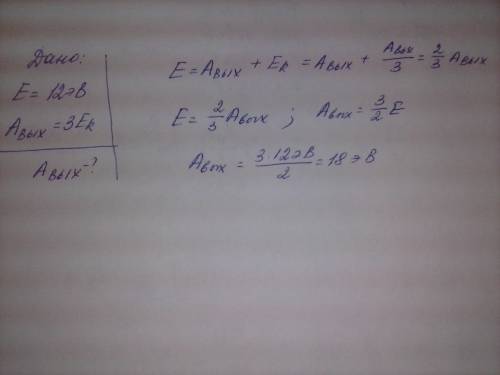 Дано:
E = 12эВ
Aвых = 3Eк
Aвых - ?
E = Aвых + Eк = Aвых + Aвых/3 = 2/3 Aвых
E = 2/3 Aвых ; Aвых = 3/2 E
Aвых = 3·12эВ/2 = 18эВ